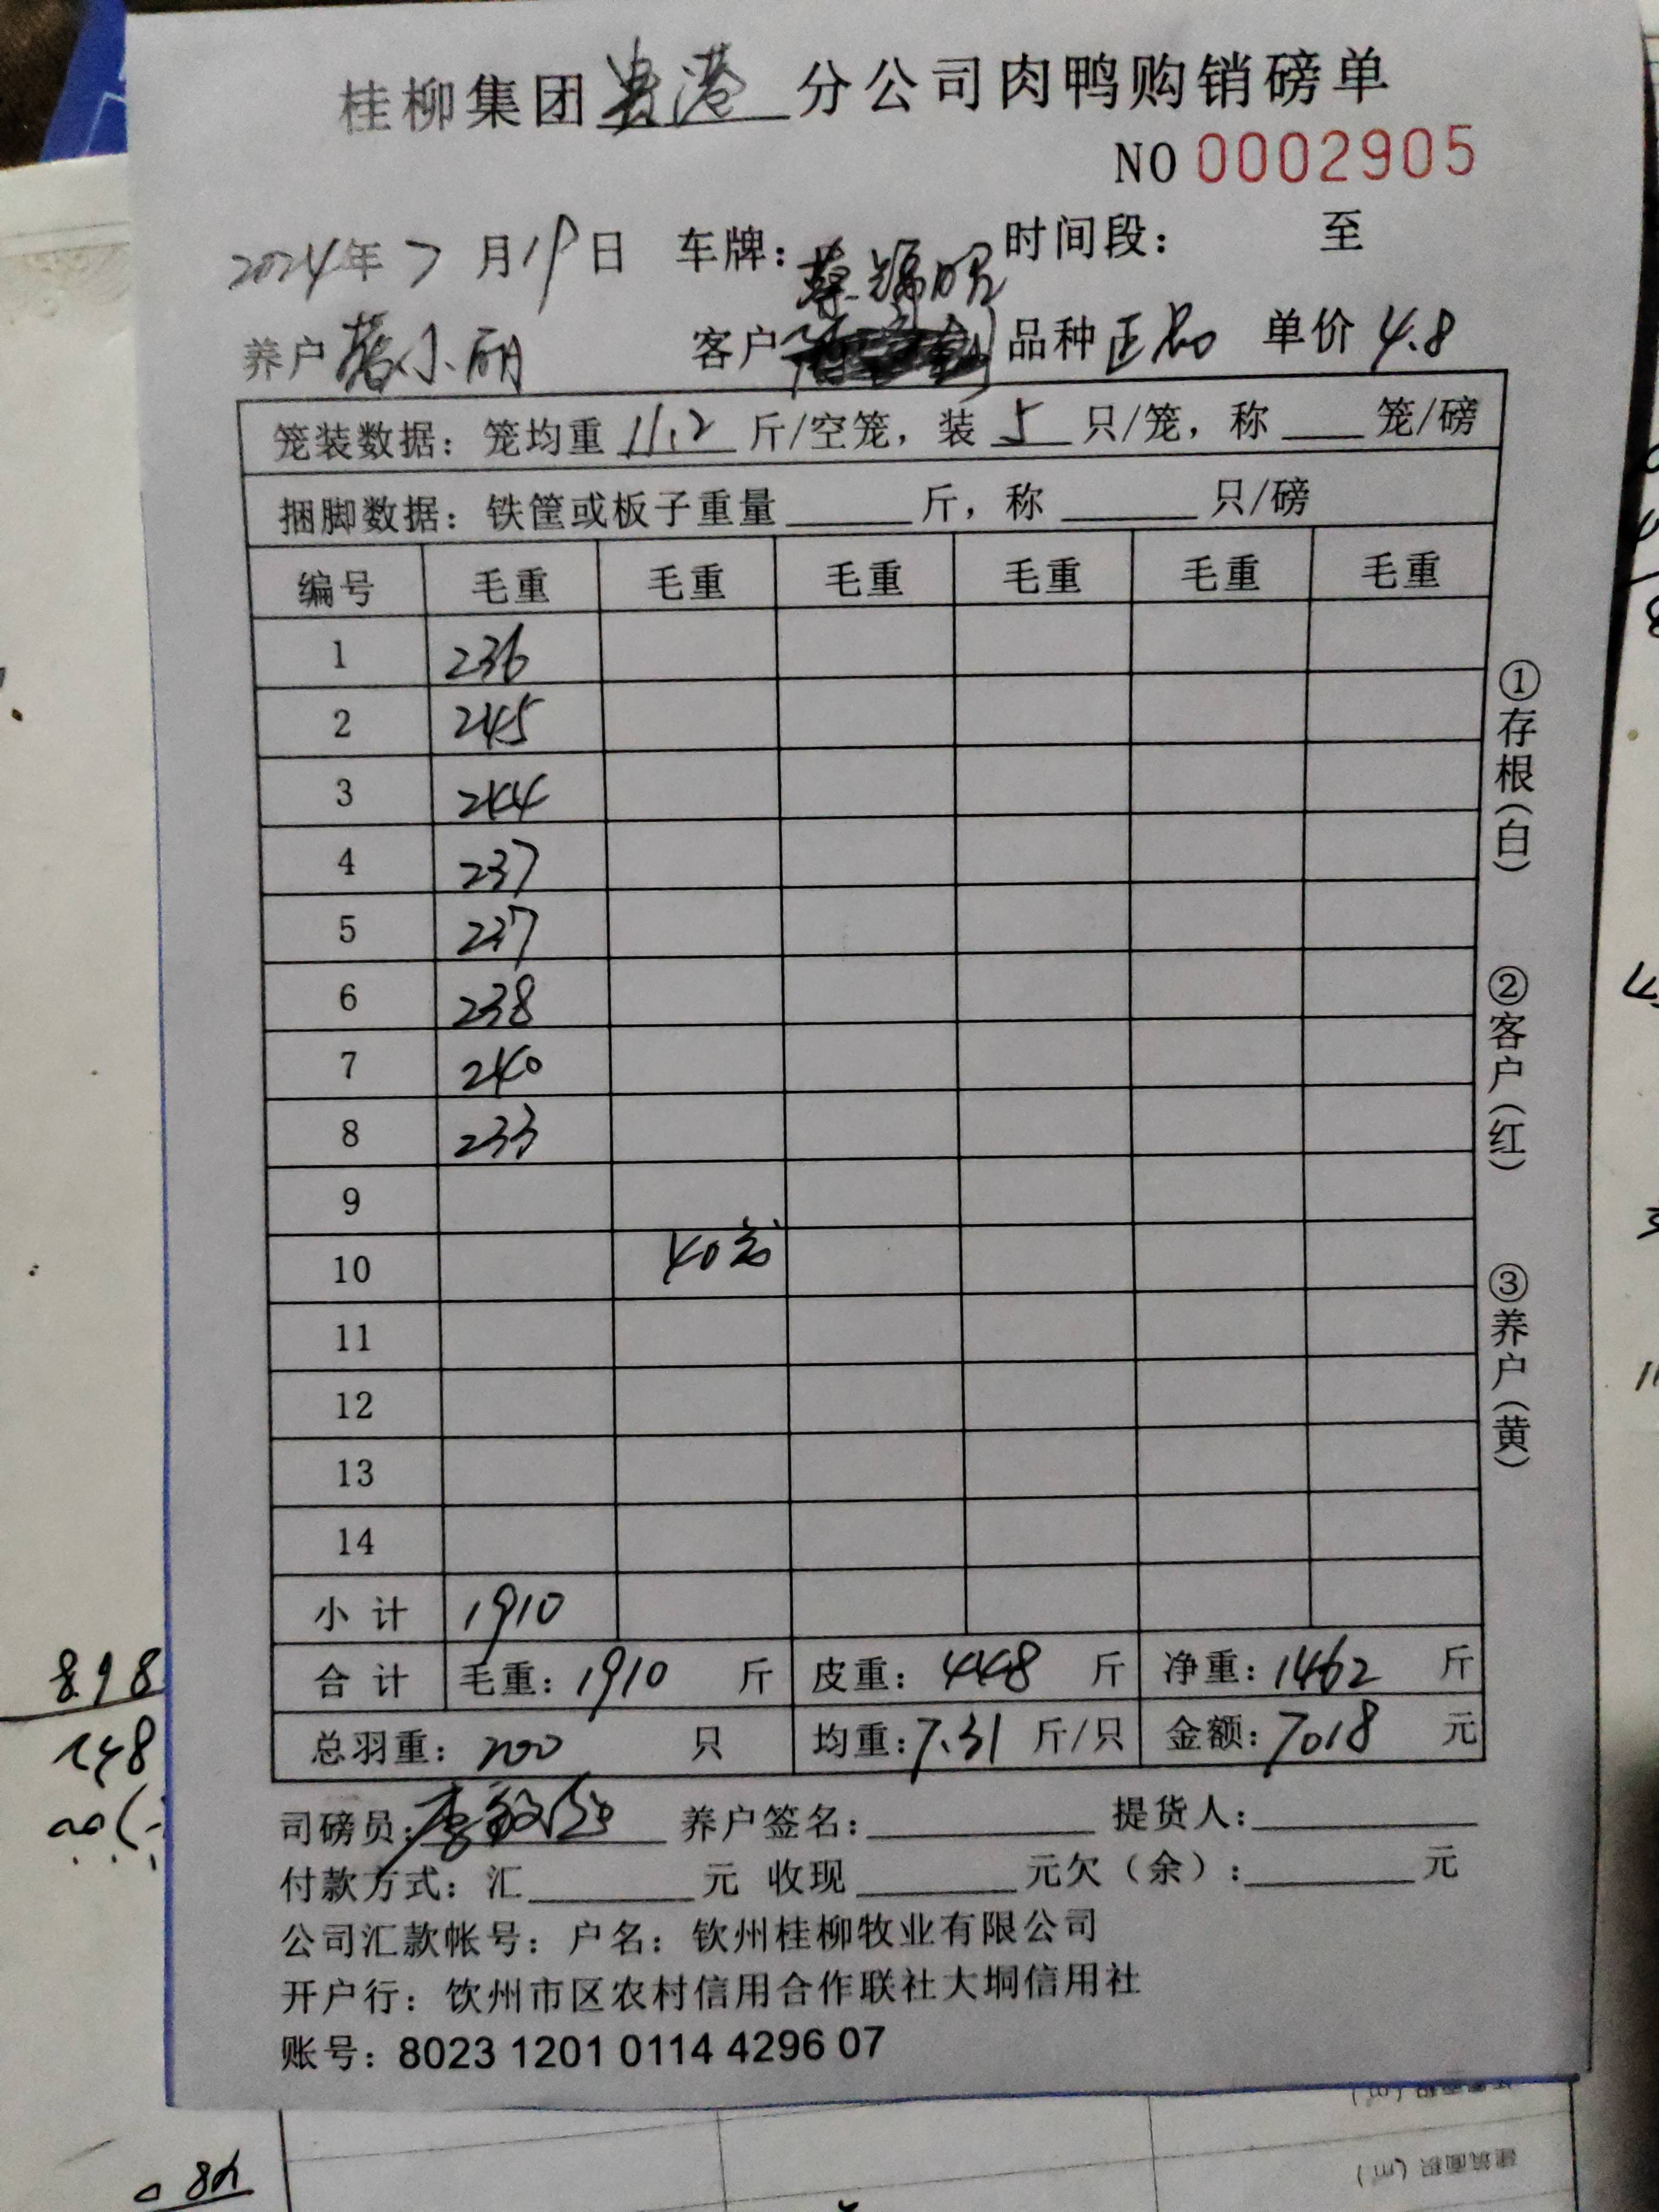 桂柳集团贵港分公司肉鸭购销磅单
NO 0002905
2024年7月19日 车牌： 时间段： 至
养户 小丽 客户 品种 正品 单价 4.8
笼装数据：笼均重 11.2 斤/空笼，装 5 只/笼，称 笼/磅
捆脚数据：铁筐或板子重量 斤，称 只/磅
编号 毛重 毛重 毛重 毛重 毛重 毛重
1 236
2 245
3 244
4 237
5 237
6 238
7 240
8 233
9
10 40
11
12
13
14
小计 1910
合计 毛重：1910 斤 皮重：448 斤 净重：1462 斤
总羽重：200 只 均重：7.31 斤/只 金额：7018 元
司磅员： 养户签名： 提货人：
付款方式：汇 元 收现 元欠（余）： 元
公司汇款帐号：户名：钦州桂柳牧业有限公司
开户行：钦州市区农村信用合作联社大垌信用社
账号：8023 1201 0114 4296 07
①存根（白）
②客户（红）
③养户（黄）
898
148
建筑面积（㎡）